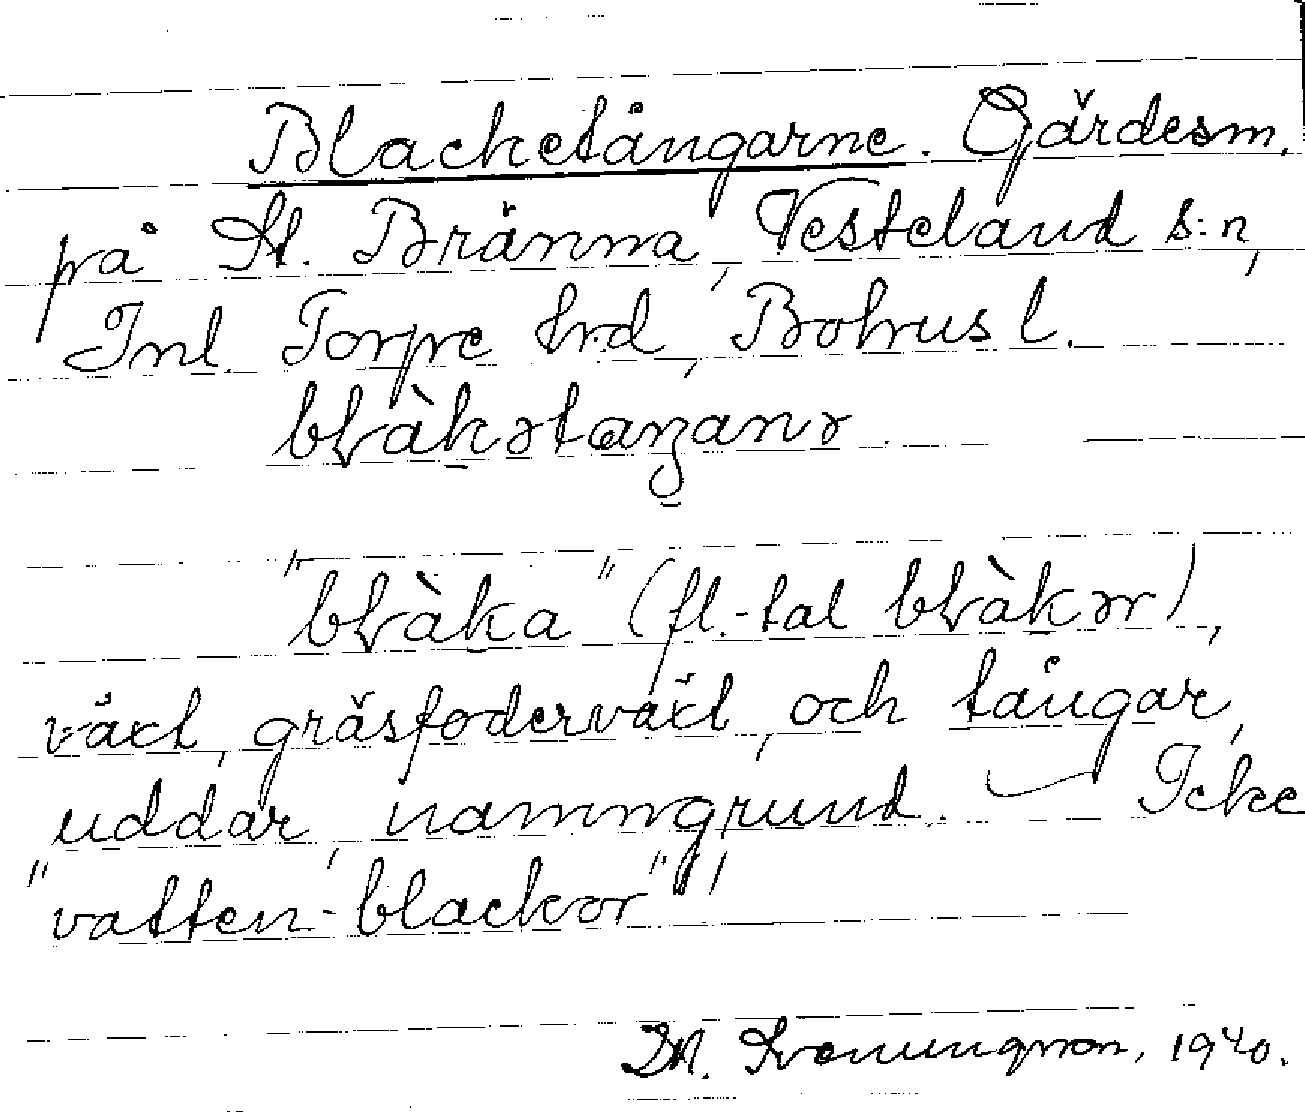 Blacketångarne. Gärdesm.
på St. Bränna, Vesteland s:n,
Inl. Torpe hrd, Bohusl.
blàkətaŋanə
"blàka" (fl.-tal blàkər),
växt, gräsfoderväxt, och tångar,
uddar, namngrund. — Icke
"vatten-blackor"!
1940.